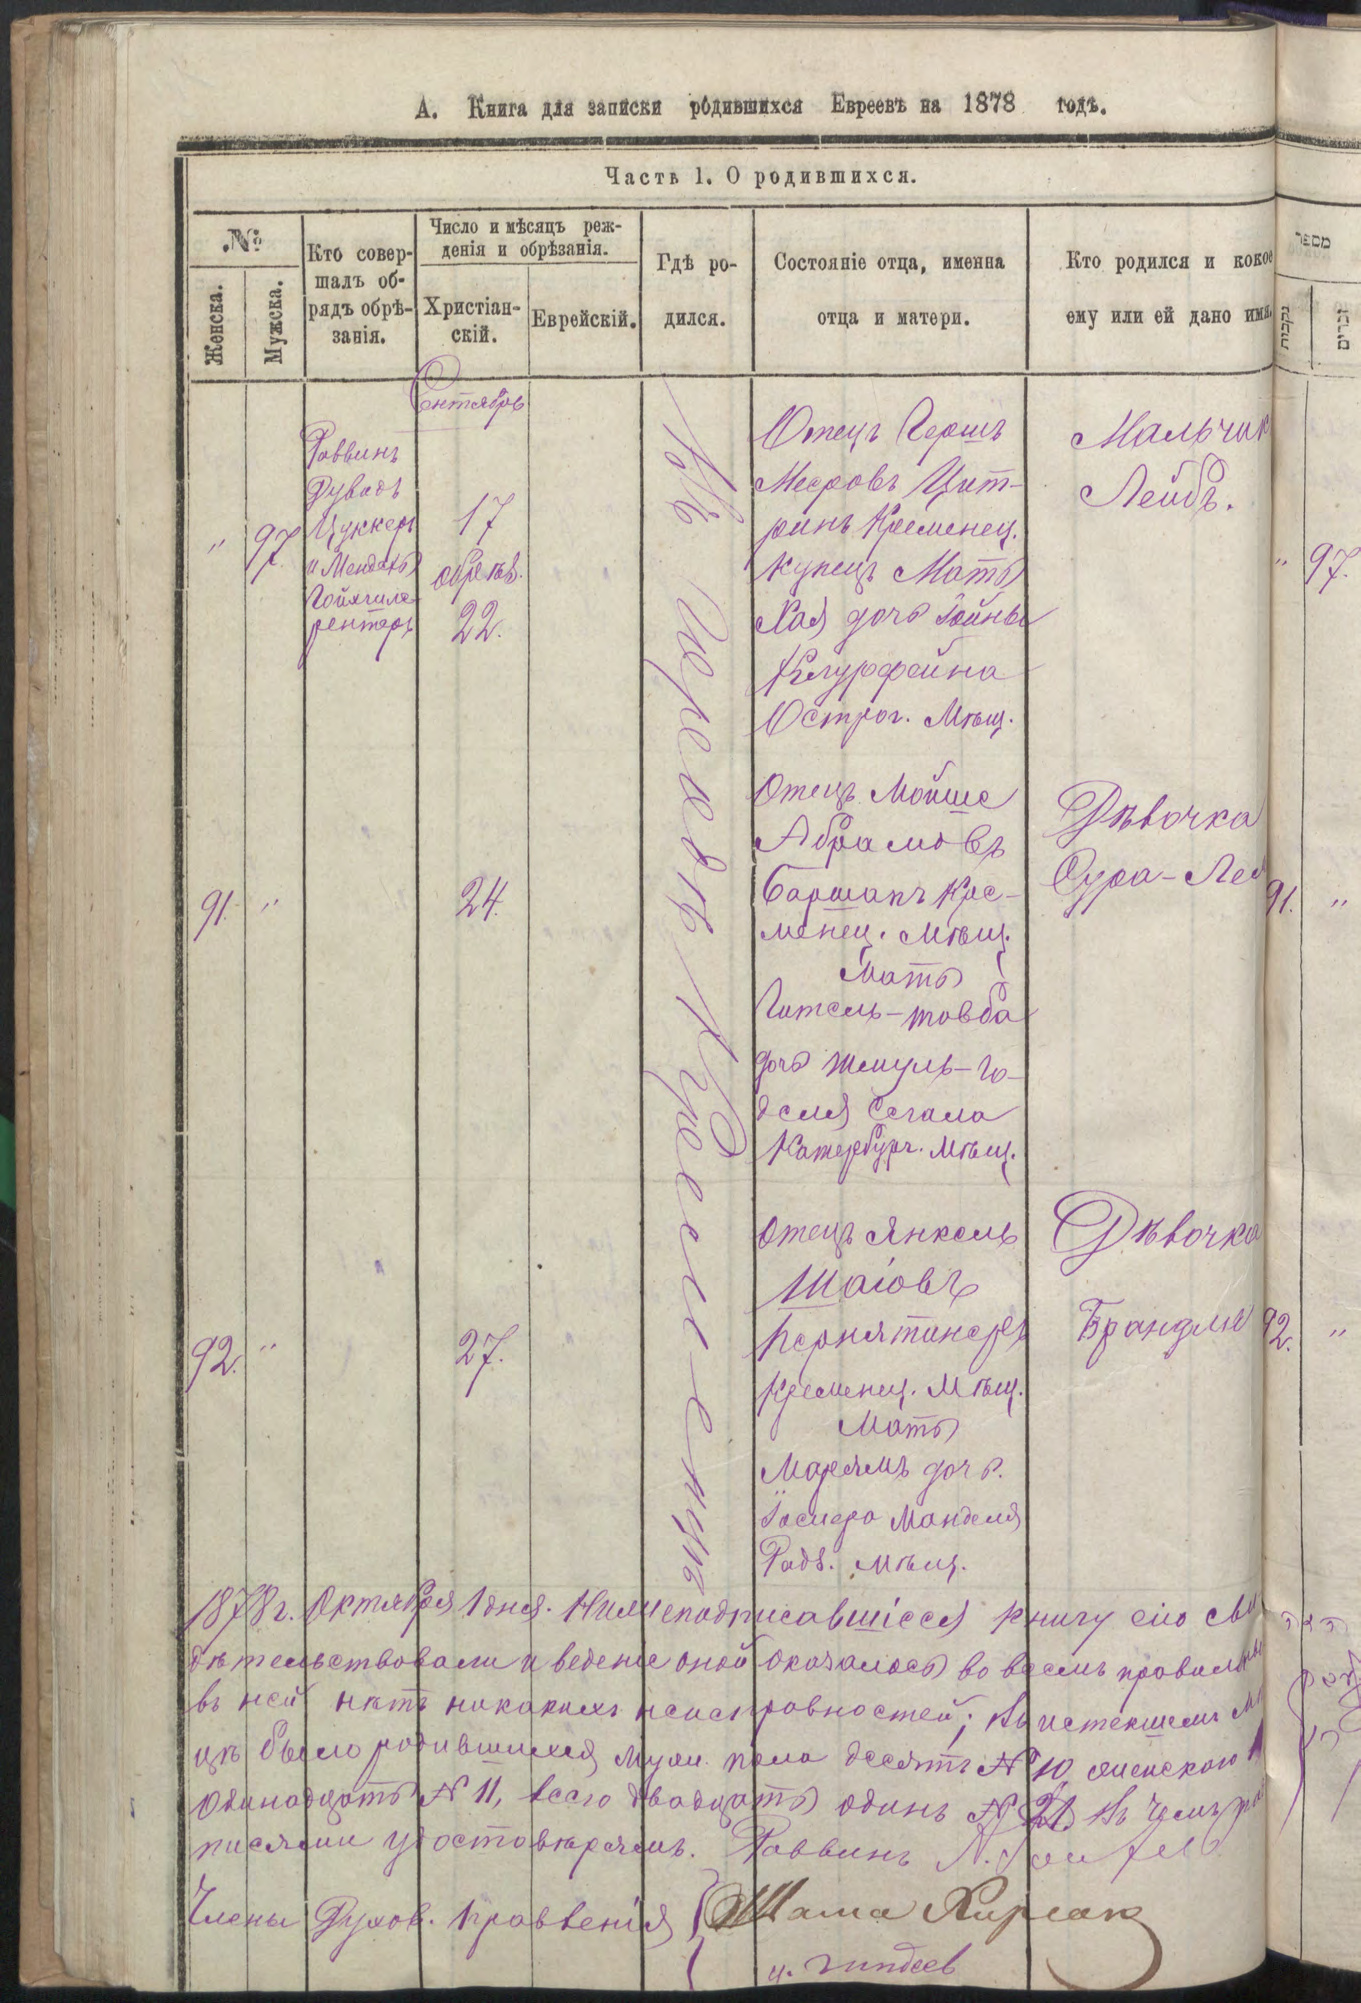 А. Книга для записки родившихся Евреевъ на 1878 годъ.
Часть 1. О родившихся.
№
Женска.
Мужска.
Кто совер-
шалъ об-
рядъ обрѣ-
занія.
Число и мѣсяцъ реж-
денія и обрѣзанія.
Христіан-
скій.
Еврейскій.
Гдѣ ро-
дился.
Состояніе отца, именна
отца и матери.
Кто родился и кокое
ему или ей дано имя.
מספר
נקבות
זכרים
Сентябрь
Въ городѣ Кременцѣ
" 97.
Раввинъ
Дувидъ
Цуккеръ
и Мендель
17
обрѣз.
22.
Отецъ Гершъ
Мееровъ Цит-
ринъ Кременец.
купецъ Мать
Хая дочь Іойны
Клурфейна
Острог. Мѣщ.
Мальчик
Лейбъ.
" 97.
91. "
24.
Отецъ Мойше
Абрамовъ
Баршапъ Кре-
менец. мѣщ.
Мать
Гитель-товба
дочь Шмуль-Го-
деля Сегала
Катербург. мѣщ.
Дѣвочка
Сура-Лея
91. "
92. "
27.
Отецъ Янкель
Шаіовъ
Кременец. Мѣщ.
Мать
Маріямъ дочь
Манделя
Радз. мѣщ.
Дѣвочка
Брандля
92. "
1878 г. Октября 1 дня. Нижеподписавшіеся книгу сію сви
дѣтельствовали и веденіе оной оказалось во всемъ правильны
въ ней нѣтъ никакихъ неисправностей; въ истекшемъ мѣ
цѣ было родившихся муж. пола десять № 10, женскою
одинадцать № 11, всего двадцать одинъ № 21. Въ чемъ
писями удостовѣряемъ. Раввинъ
Члены Духов. Правленія